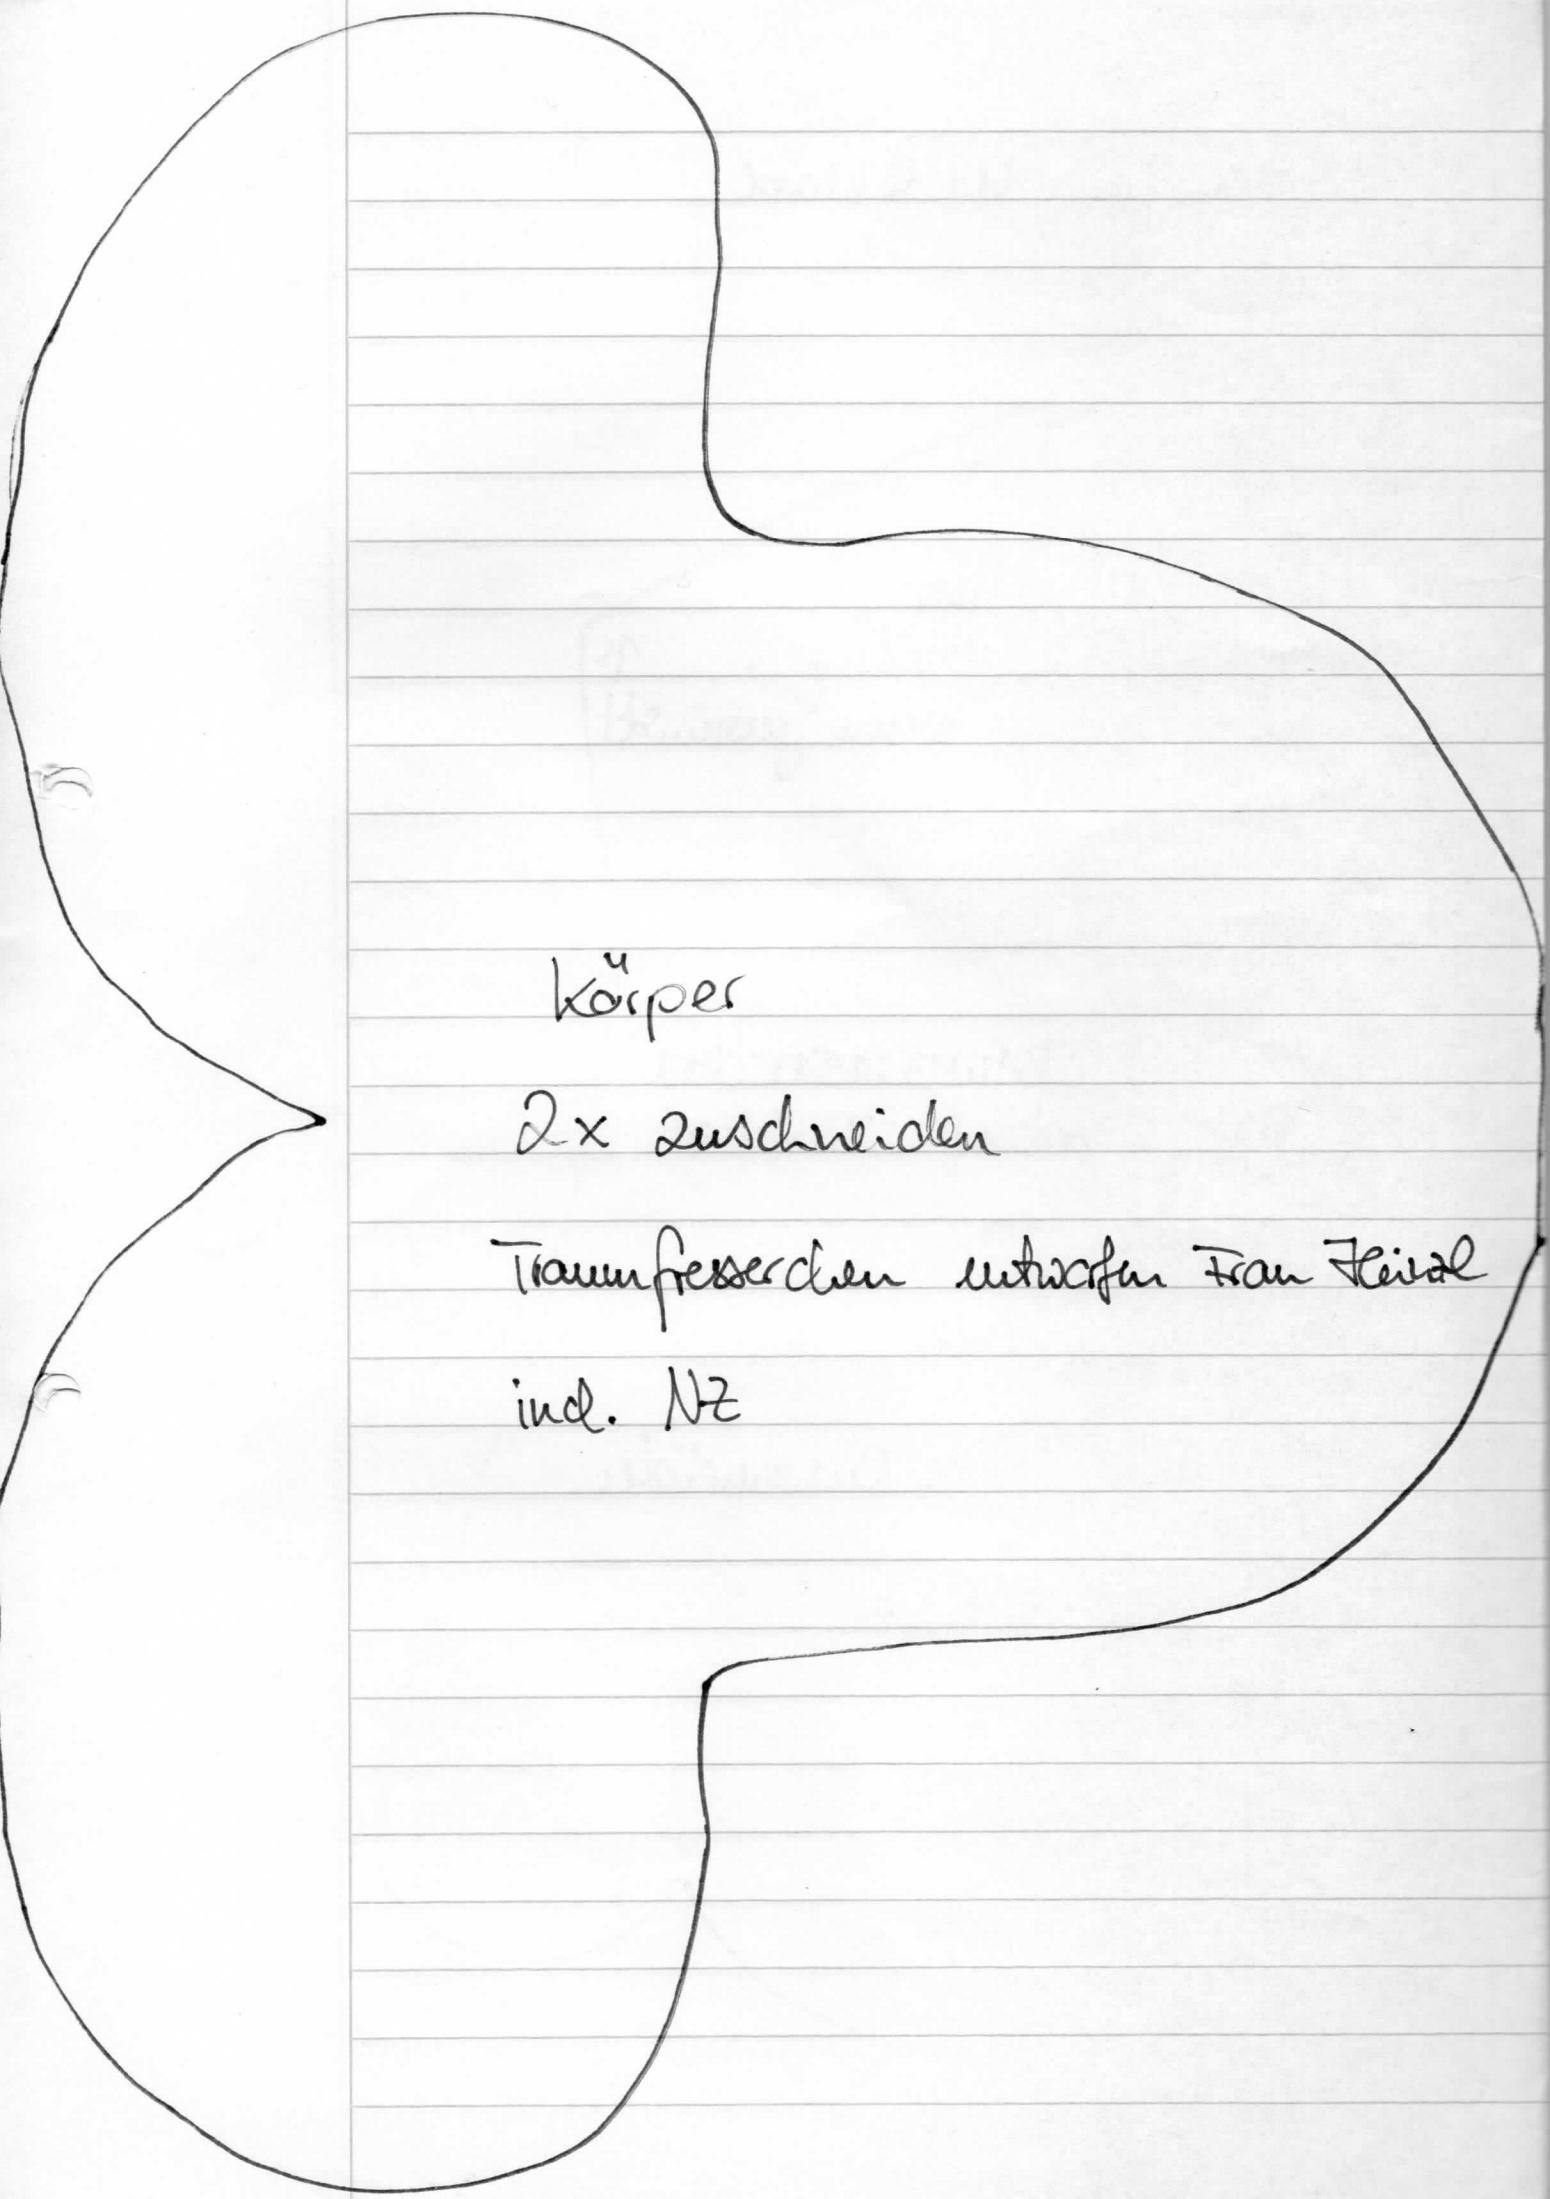 Körper
2x zuschneiden
Traumfresserchen entworfen Frau
incl. NZ